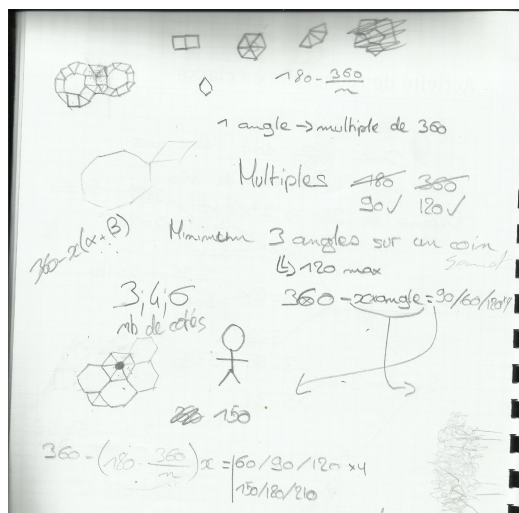 180 - 360/n
1 angle → multiple de 360
Multiples 180 360
90 ✓ 120 ✓
360 - x(α + β)
Minimum 3 angles sur un coin
↳ 120 max
3;4;6
nb de cotés
360 - x × angle = 90/60/120
150
360 - (180 - 360/n)x = 60/90/120 x4
150/180/210